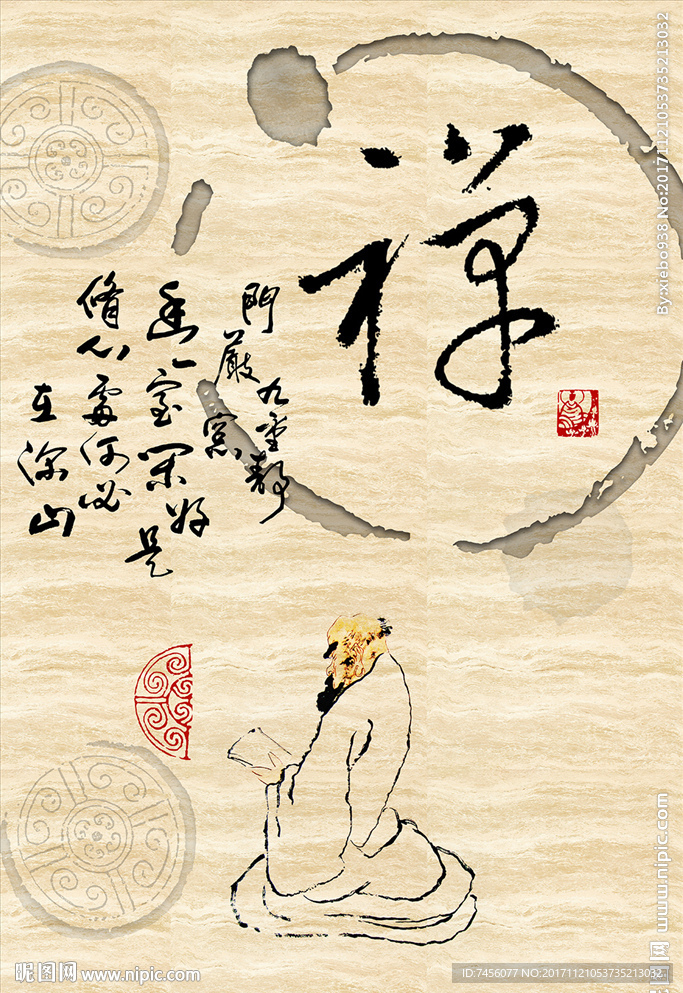 禅
門嚴九重靜
窓幽一室閑好是
脩心處何必
在深山
By:xiebo938 No:20171121053735213032
昵图网 www.nipic.com
昵图网 www.nipic.com
ID:7456077 NO:20171121053735213032